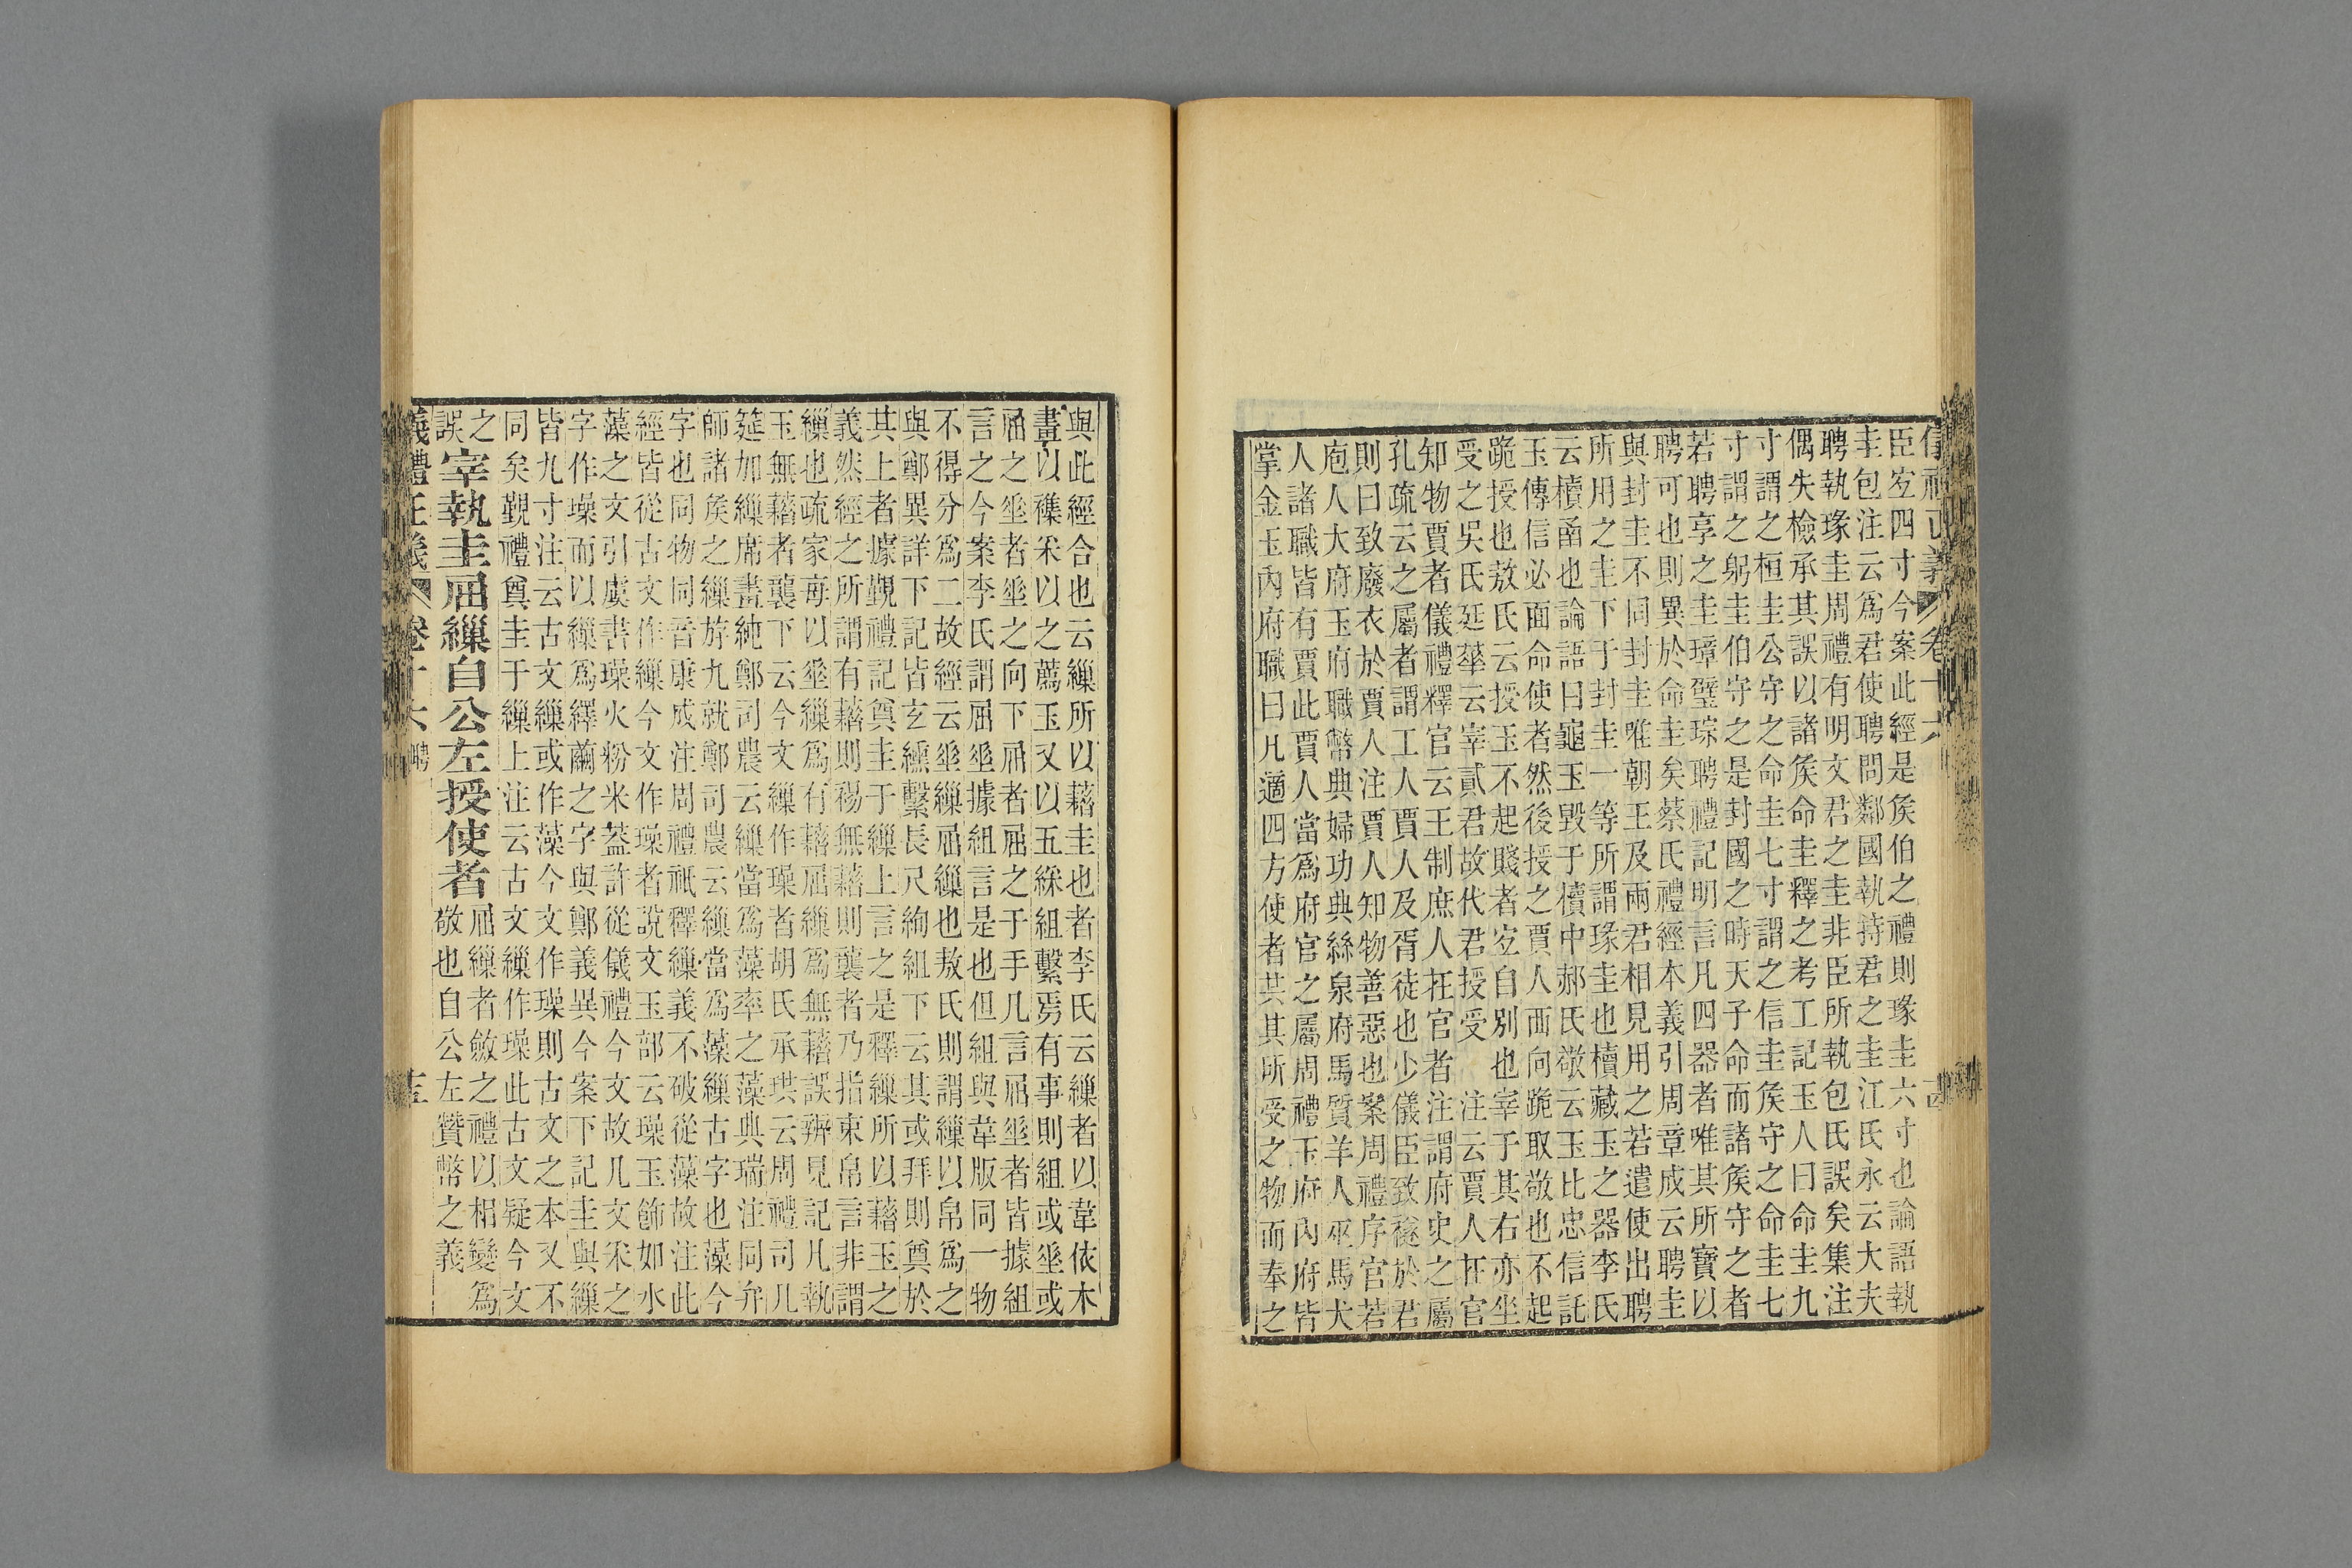 儀禮正義 卷十六
臣㝎四寸今案此經是矦伯之禮則瑑圭六寸也論語執
圭包注云爲君使聘問鄰國執持君之圭江氏永云大夫
聘執瑑圭周禮有明文君之圭非臣所執包氏誤矣集注
偶失檢承其誤以諸矦命圭釋之考工記玉人曰命圭九
寸謂之桓圭公守之命圭七寸謂之信圭矦守之命圭七
寸謂之躬圭伯守之是封國之時天子命而諸矦守之者
若聘享之圭璋璧琮聘禮記明言凡四器者唯其所寶以
聘可也則異於命圭矣蔡氏禮經本義引周章成云聘圭
與封圭不同封圭唯朝王及兩君相見用之若遣使出聘
所用之圭下于封圭一等所謂瑑圭也櫝藏玉之器李氏
云櫝𠥓也論語曰龜玉毀于櫝中郝氏敬云玉比忠信託
玉傳信必面命使者然後授之賈人西向跪取敬也不起
跪授也敖氏云授玉不起賤者㝎自別也宰于其右亦坐
受之吳氏廷華云宰貳君故代君授受　注云賈人在官
知物賈者儀禮釋官云王制庶人在官者注謂府史之屬
孔疏云之屬者謂工人賈人及胥徒也少儀臣致襚於君
則曰致廢衣於賈人注賈人知物善惡也案周禮序官若
庖人大府玉府職幣典婦功典絲泉府馬質羊人巫馬犬
人諸職皆有賈此賈人當爲府官之屬周禮玉府內府皆
掌金玉內府職曰凡適四方使者共其所受之物而奉之
與此經合也云繅所以藉圭也者李氏云繅者以韋依木
畫以襍采以之薦玉又以五綵組繫焉有事則組或𡍮或
屈之𡍮者𡍮之向下屈者屈之于手凡言屈𡍮者皆據組
言之今案李氏謂屈𡍮據組言是也但組與韋版同一物
不得分爲二故經云𡍮繅屈繅也敖氏則謂繅以帛爲之
與鄭異詳下記皆玄纁繫長尺絢組下云其或拜則奠於
其上者據覲禮記奠圭于繅上言之是釋繅所以藉玉之
義然經之所謂有藉則裼無藉則襲者乃指束帛言非謂
繅也疏家每以𡍮繅爲有藉屈繅爲無藉誤辨見記凡執
玉無藉者襲下云今文繅作璪者胡氏承珙云周禮司几
筵加繅席畫純鄭司農云繅當爲藻率之藻典瑞注同弁
師諸矦之繅斿九就鄭司農云繅當爲藻繅古字也藻今
字也同物同音康成注周禮祇釋繅義不破從藻故注此
經皆從古文作繅今文作璪者說文玉部云璪玉飾如水
藻之文引虞書璪火粉米葢許從儀禮今文故凡文采之
字作璪而以繅爲繹繭之字與鄭義異今案下記圭與繅
皆九寸注云古文繅或作藻今文作璪則古文之本又不
同矣覲禮奠圭于繅上注云古文繅作璪此古文疑今文
之誤宰執圭屈繅自公左授使者屈繅者斂之禮以相變爲敬也自公左贊幣之義